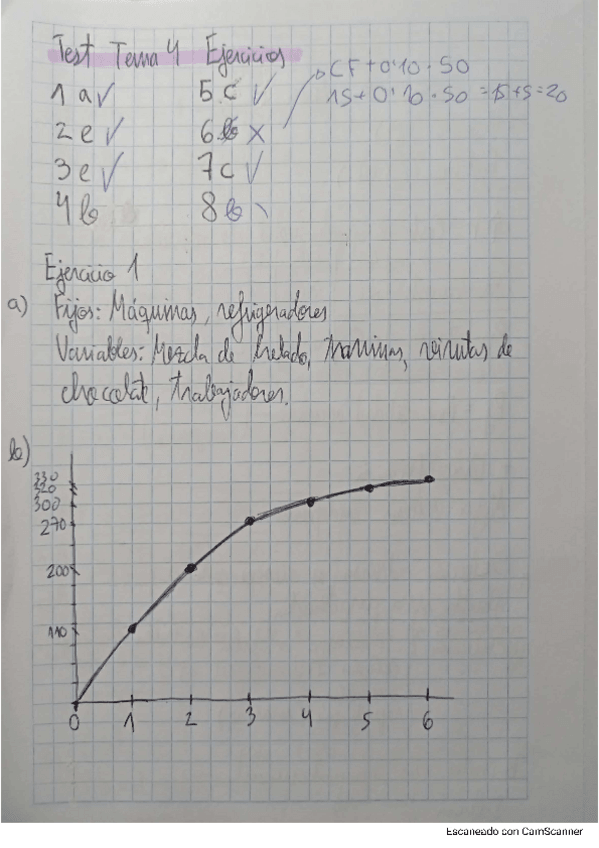 Test Tema 4 Ejercicios
1 a ✓ 5 c ✓ CF + 0'10 · 50
2 e ✓ 6 b x 15 + 0'10 · 50 = 15 + 5 = 20
3 e ✓ 7 c ✓
4 b 8 b
Ejercicio 1
a) Fijos: Máquinas, refrigeradores
Variables: Mezcla de helado, virutas de
chocolate, trabajadores.
b)
330
320
300
270
200
110
0 1 2 3 4 5 6
Escaneado con CamScanner